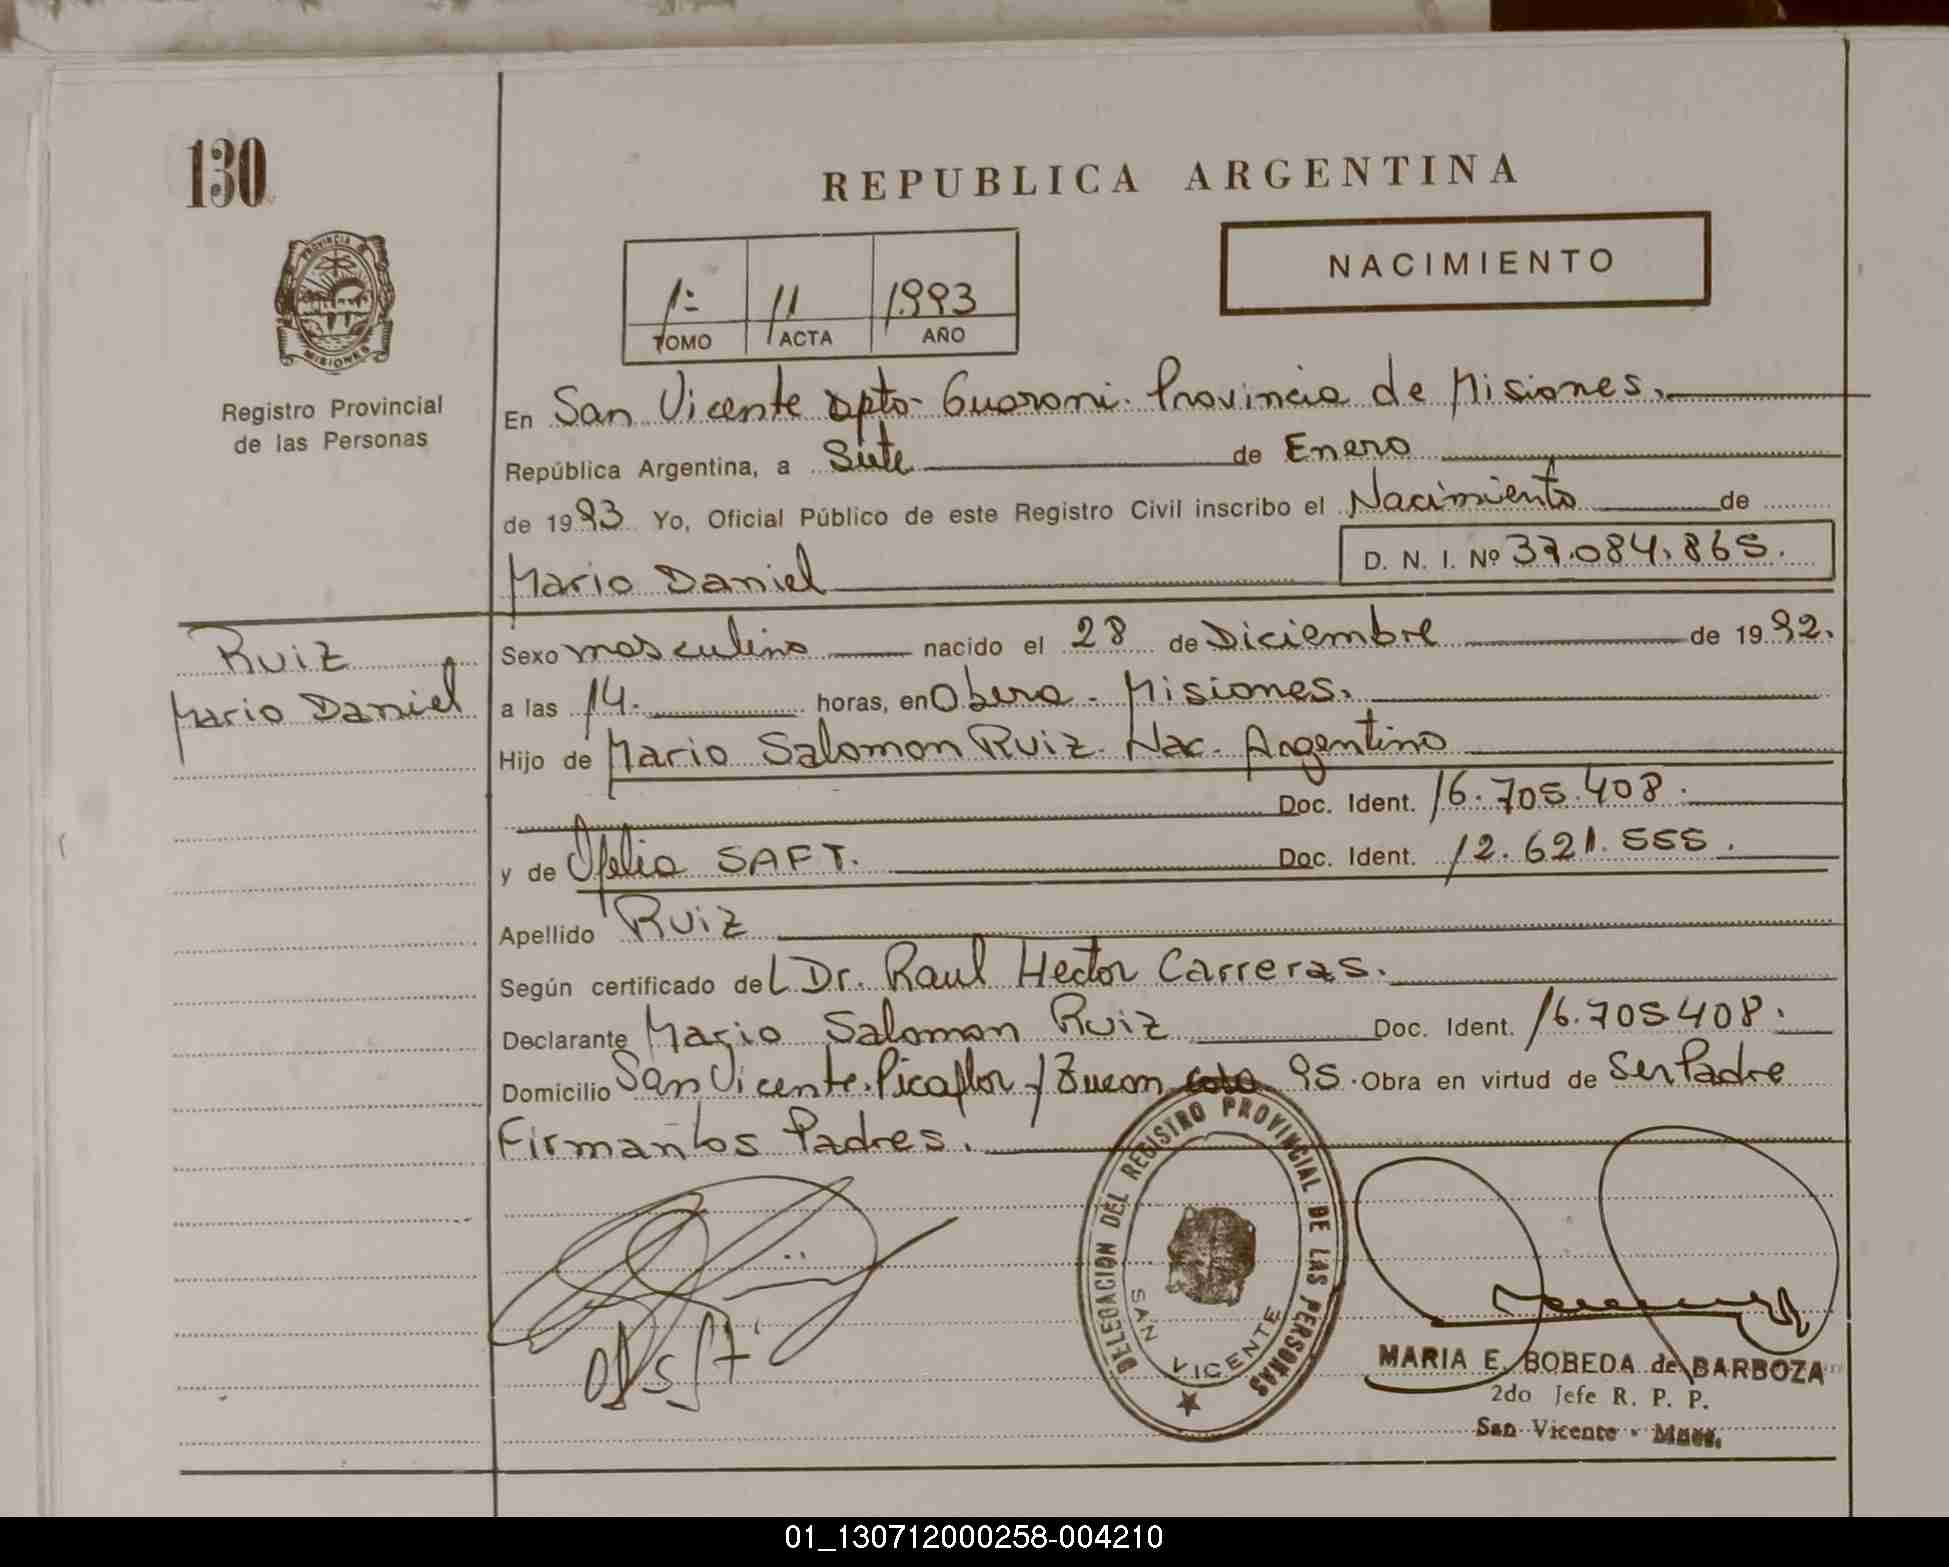 130
REPUBLICA ARGENTINA
NACIMIENTO
1º 11 1993
TOMO ACTA AÑO
PROVINCIA DE MISIONES
Registro Provincial
de las Personas
En San Vicente dpto. Guarani. Provincia de Misiones.
República Argentina, a Siete de Enero
de 1993 Yo, Oficial Público de este Registro Civil inscribo el Nacimiento de
Mario Daniel D. N. I. Nº 37.084.865.
Ruiz
Mario Daniel
Sexo masculino nacido el 28 de Diciembre de 1992.
a las 14. horas, en Obera. Misiones.
Hijo de Mario Salomon Ruiz. Nac. Argentino
Doc. Ident. 16.705.408.
y de Ofelia SAFT. Doc. Ident. 12.621.555.
Apellido Ruiz
Según certificado del Dr. Raul Hector Carreras.
Declarante Mario Salomon Ruiz Doc. Ident. 16.705408.
Domicilio San Vicente. Picaflor / 95. Obra en virtud de Ser Padre
Firman los Padres.
DELEGACION DEL REGISTRO PROVINCIAL DE LAS PERSONAS
SAN VICENTE
MARIA E. BOBEDA de BARBOZA
2do Jefe R. P. P.
San Vicente - Mnes.
01_130712000258-004210